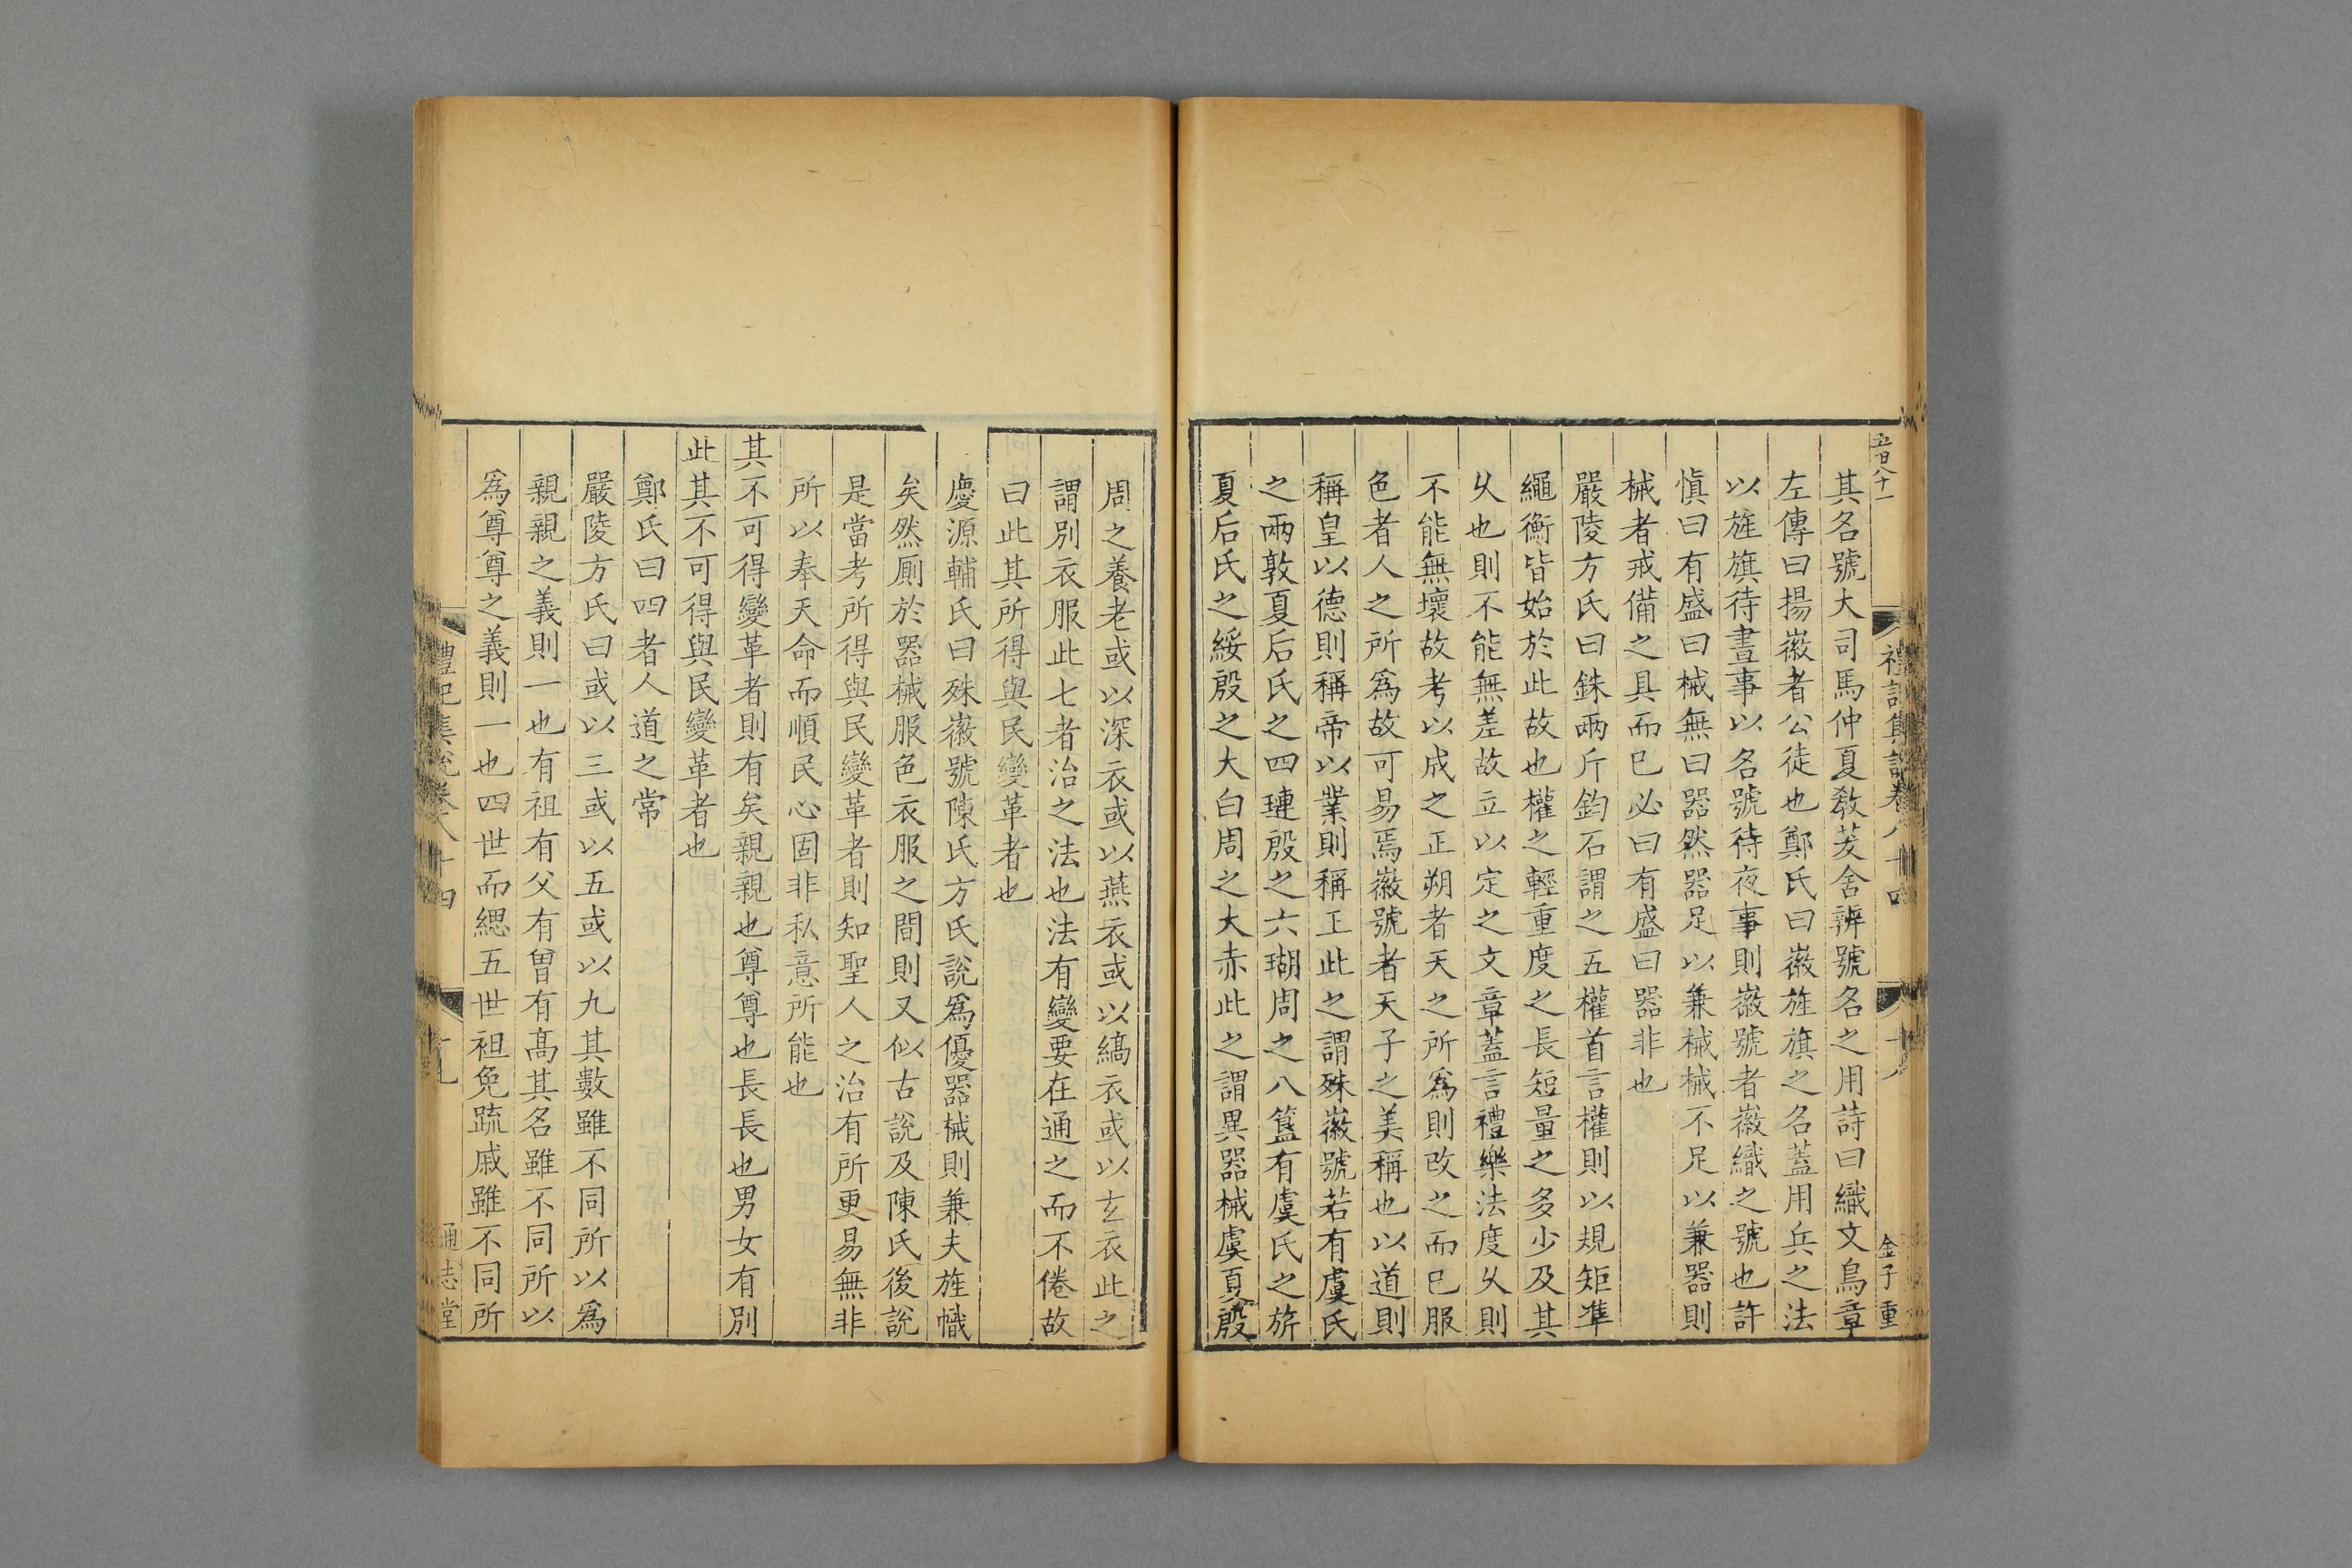 五百八十一
禮記集說卷八十四
十八
金子重
其名號大司馬仲夏敎茇舍辨號名之用詩曰織文鳥章
左傳曰揚徽者公徒也鄭氏曰徽旌旗之名蓋用兵之法
以旌旗待晝事以名號待夜事則徽號者徽織之號也許
慎曰有盛曰械無曰器然器足以兼械械不足以兼器則
械者戒備之具而已必曰有盛曰器非也
嚴陵方氏曰銖兩斤鈞石謂之五權首言權則以規矩準
繩衡皆始於此故也權之輕重度之長短量之多少及其
乆也則不能無差故立以定之文章蓋言禮樂法度乆則
不能無壞故考以成之正朔者天之所爲則改之而已服
色者人之所爲故可易焉徽號者天子之美稱也以道則
稱皇以德則稱帝以業則稱王此之謂殊徽號若有虞氏
之兩敦夏后氏之四璉殷之六瑚周之八簋有虞氏之旂
夏后氏之綏殷之大白周之大赤此之謂異器械虞夏殷
周之養老或以深衣或以燕衣或以縞衣或以玄衣此之
謂別衣服此七者治之法也法有變要在通之而不倦故
曰此其所得與民變革者也
慶源輔氏曰殊徽號陳氏方氏說爲優器械則兼夫旌幟
矣然厠於器械服色衣服之間則又似古說及陳氏後說
是當考所得與民變革者則知聖人之治有所更易無非
所以奉天命而順民心固非私意所能也
其不可得變革者則有矣親親也尊尊也長長也男女有別
此其不可得與民變革者也
鄭氏曰四者人道之常
嚴陵方氏曰或以三或以五或以九其數雖不同所以爲
親親之義則一也有祖有父有曾有高其名雖不同所以
爲尊尊之義則一也四世而緦五世袒免疏戚雖不同所
禮記集說卷八十四
十九
通志堂